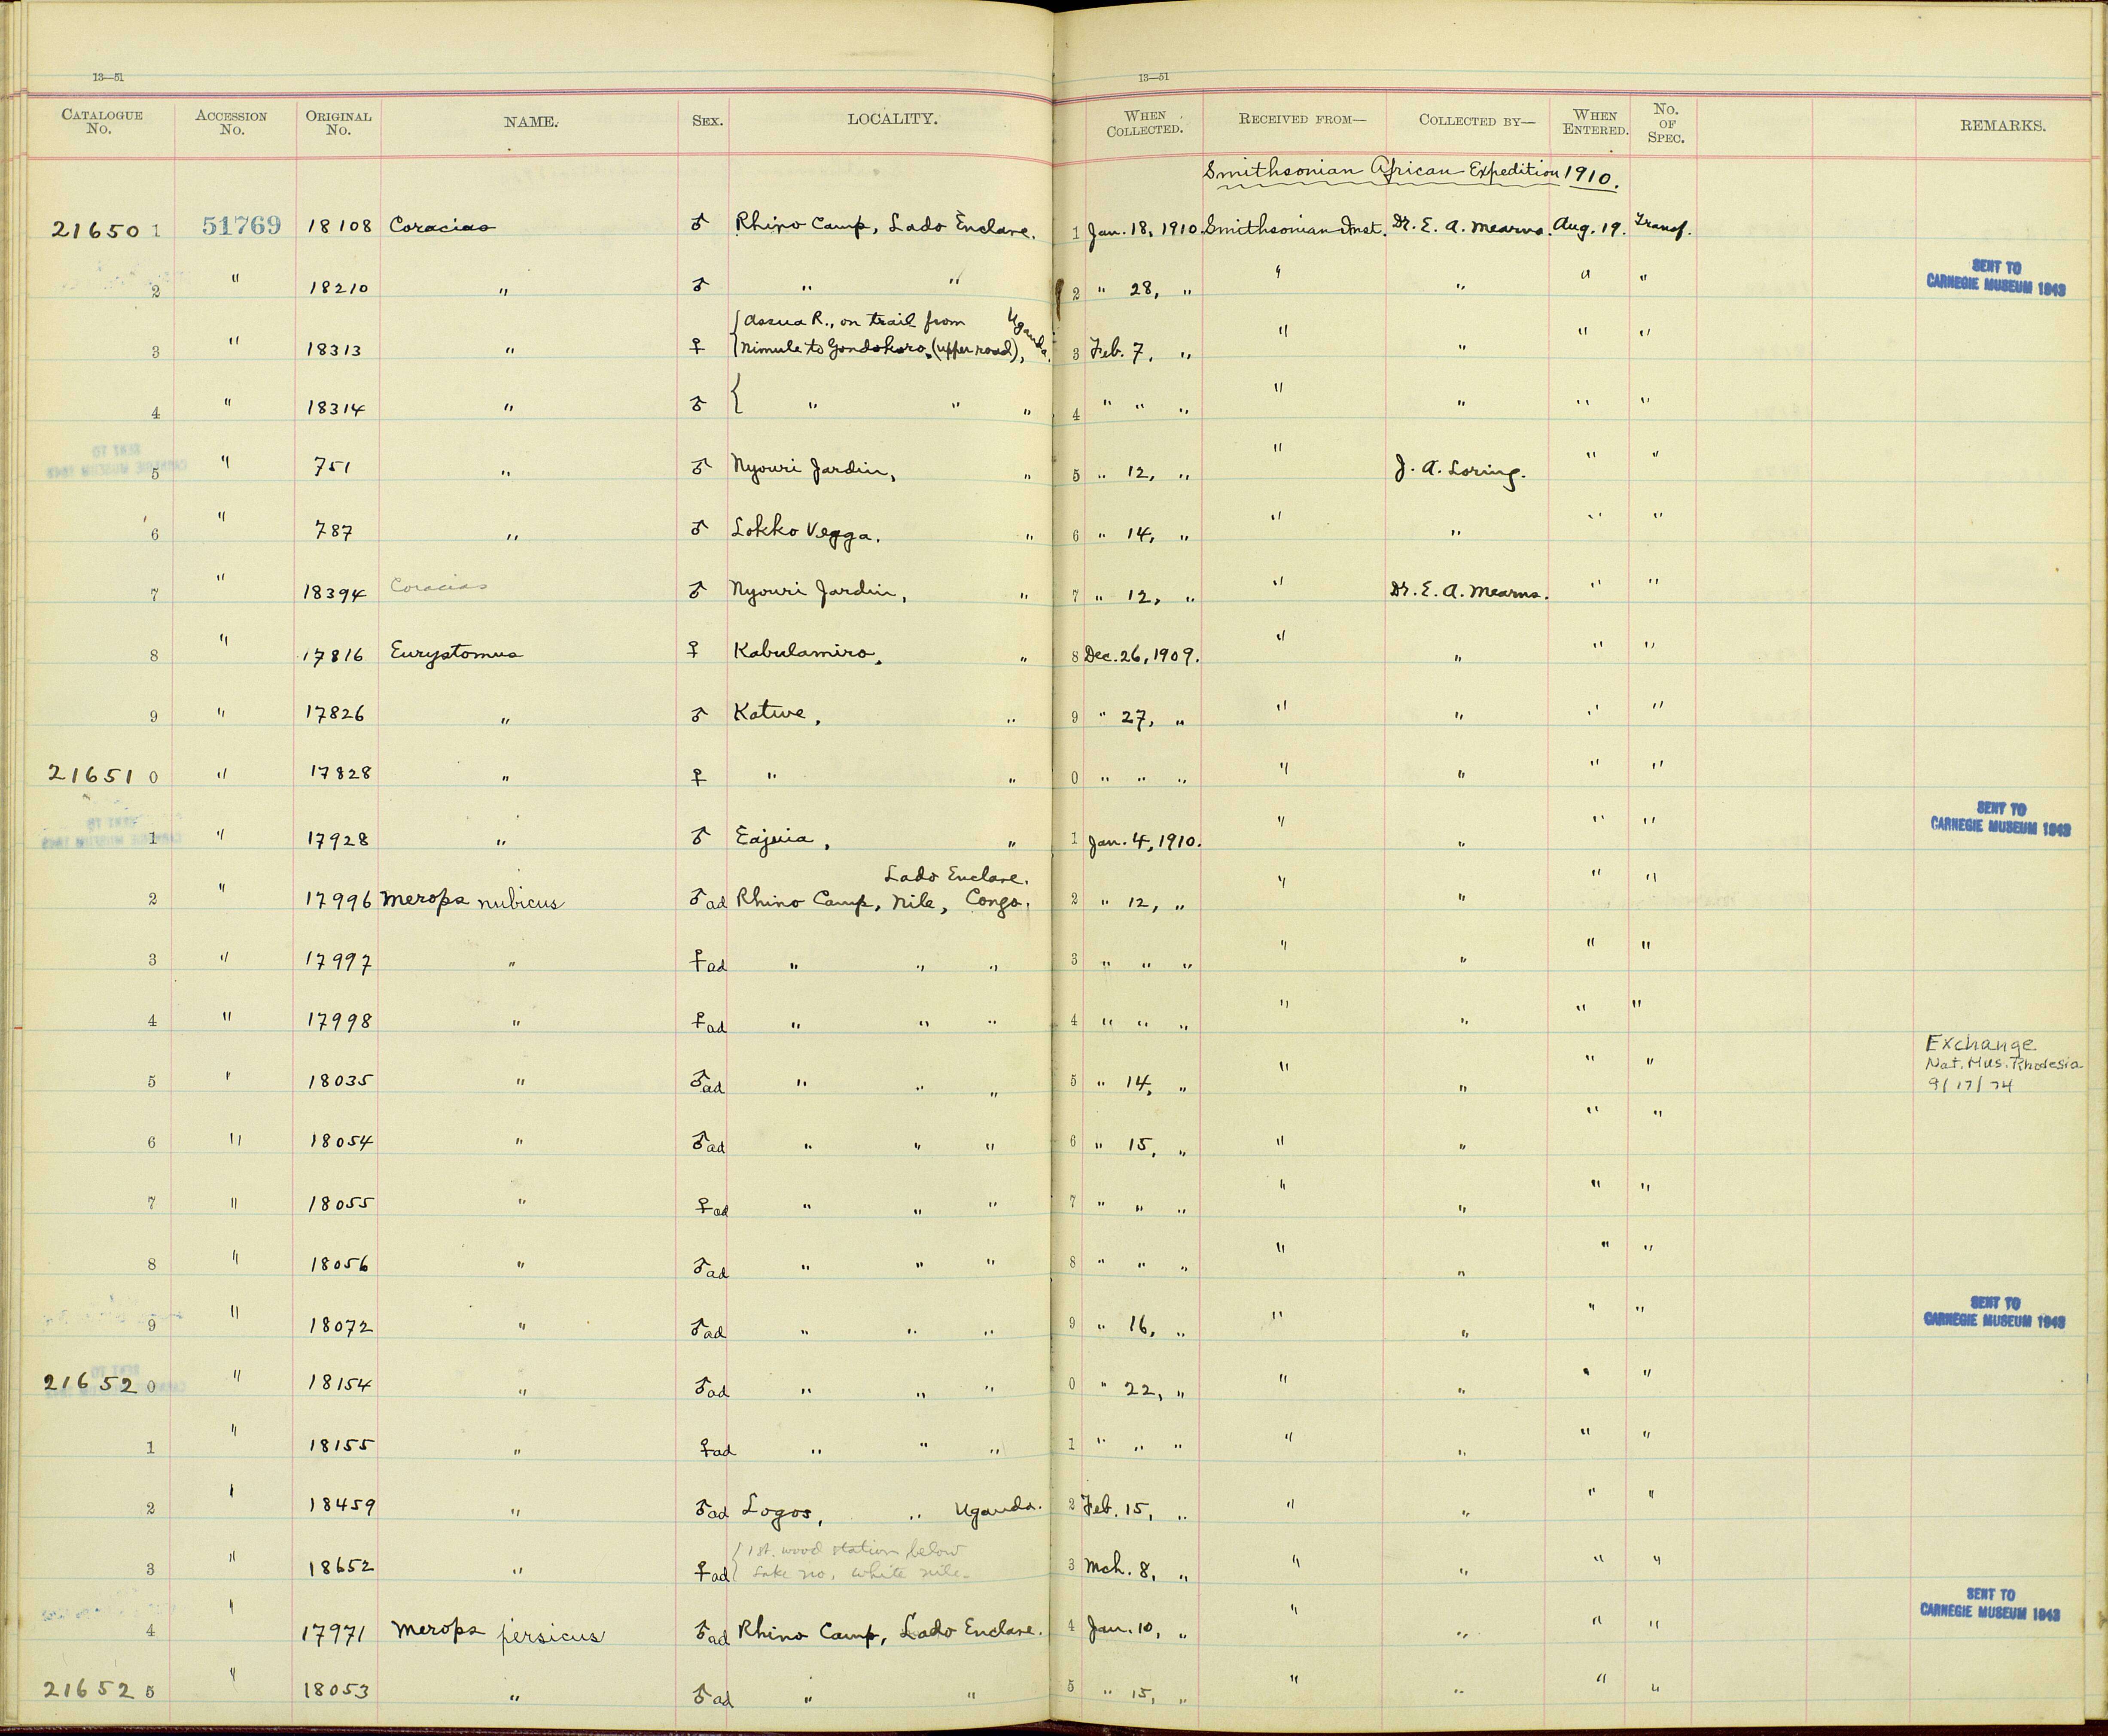 13—51 13—51
CATALOGUE No. ACCESSION No. ORIGINAL No. NAME. SEX. LOCALITY. WHEN COLLECTED. RECEIVED FROM— COLLECTED BY— WHEN ENTERED. No. OF SPEC. REMARKS.
Smithsonian African Expedition 1910.
21650 1 51769 18108 Coracias ♂ Rhino Camp, Lado Enclave. 1 Jan. 18, 1910. Smithsonian Inst. Dr. E. A. Mearns. Aug. 19. Transf.
2 " 18210 " ♂ " " 2 " 28, " " " " " SENT TO CARNEGIE MUSEUM 1943
3 " 18313 " ♀ { Assua R., on trail from Nimule to Gondokoro, (upper road), Uganda. 3 Feb. 7, " " " " "
4 " 18314 " ♂ { " " " 4 " " " " " " "
5 " 751 " ♂ Nyouri Jardin, " 5 " 12, " " J. A. Loring. " "
6 " 787 " ♂ Lokko Vegga. " 6 " 14, " " " " "
7 " 18394 Coracias ♂ Nyouri Jardin, " 7 " 12, " " Dr. E. A. Mearns. " "
8 " 17816 Eurystomus ♀ Kabulamiro, " 8 Dec. 26, 1909. " " " "
9 " 17826 " ♂ Katwe, " 9 " 27, " " " " "
21651 0 " 17828 " ♀ " " 0 " " " " " " "
1 " 17928 " ♂ Eajuia, " 1 Jan. 4, 1910. " " " " SENT TO CARNEGIE MUSEUM 1943
Lado Enclave.
2 " 17996 Merops nubicus ♂ad Rhino Camp, Nile, Congo. 2 " 12, " " " " "
3 " 17997 " ♀ad " " " 3 " " " " " " "
4 " 17998 " ♀ad " " " 4 " " " " " " "
5 " 18035 " ♂ad " " " 5 " 14, " " " " " Exchange Nat. Mus. Rhodesia 9/17/74
6 " 18054 " ♂ad " " " 6 " 15, " " " " "
7 " 18055 " ♀ad " " " 7 " " " " " " "
8 " 18056 " ♂ad " " " 8 " " " " " " "
9 " 18072 " ♂ad " " " 9 " 16, " " " " " SENT TO CARNEGIE MUSEUM 1943
21652 0 " 18154 " ♂ad " " " 0 " 22, " " " " "
1 " 18155 " ♀ad " " " 1 " " " " " " "
2 " 18459 " ♂ad Logos, " Uganda. 2 Feb. 15, " " " " "
3 " 18652 " ♀ad { 1st. wood station below Lake no, white nile. 3 Mch. 8, " " " " "
4 " 17971 Merops persicus ♂ad Rhino Camp, Lado Enclave. 4 Jan. 10, " " " " " SENT TO CARNEGIE MUSEUM 1943
21652 5 " 18053 " ♂ad " " 5 " 15, " " " " "